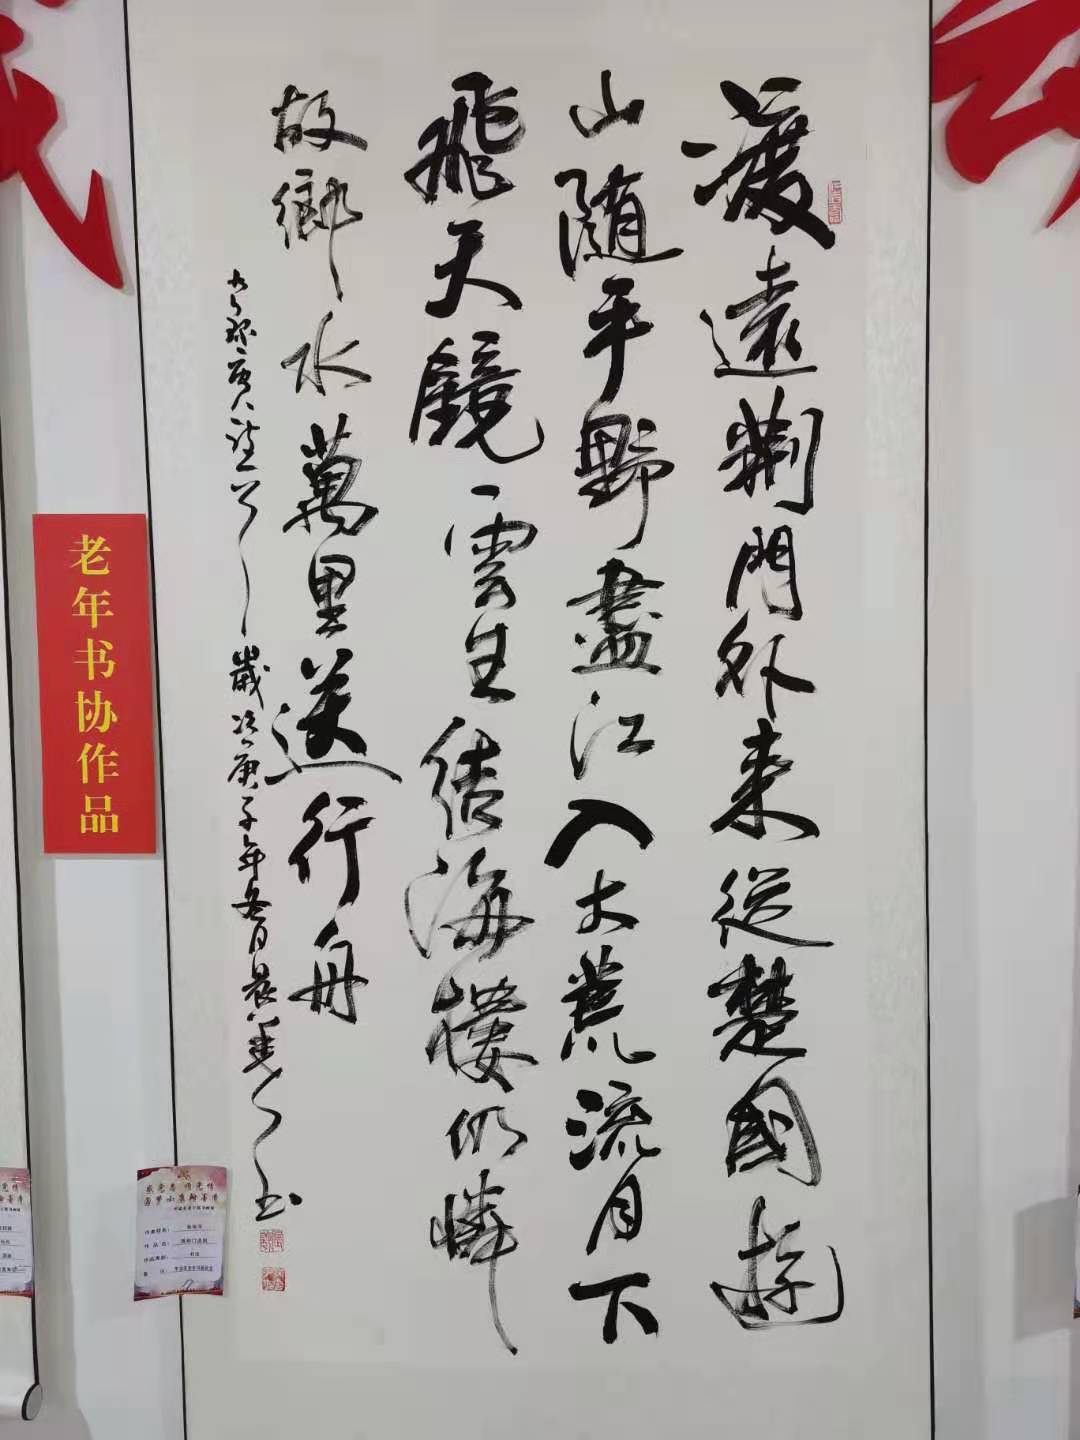 渡遠荆門外来從楚國遊
山随平野盡江入大荒流月下
飛天鏡雲生结海樓仍憐
故鄉水萬里送行舟
歲次庚子年冬月晨
老年书协作品